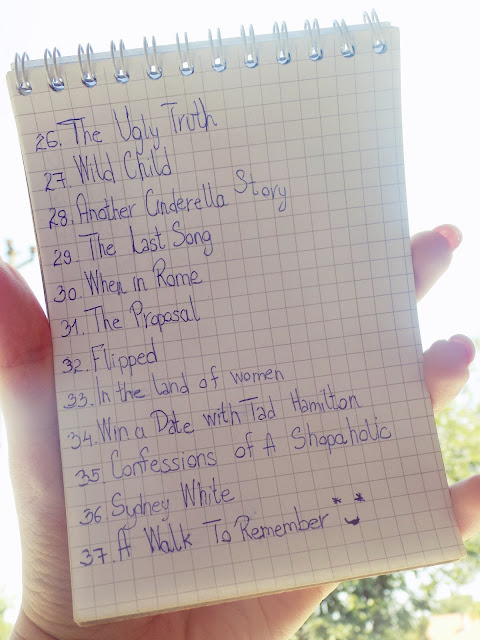 26. The Ugly Truth
27. Wild Child
28. Another Cinderella Story
29. The Last Song
30. When in Rome
31. The Proposal
32. Flipped
33. In the land of women
34. Win a Date with Tad Hamilton
35. Confessions of A Shopaholic
36. Sydney White
37. A Walk To Remember